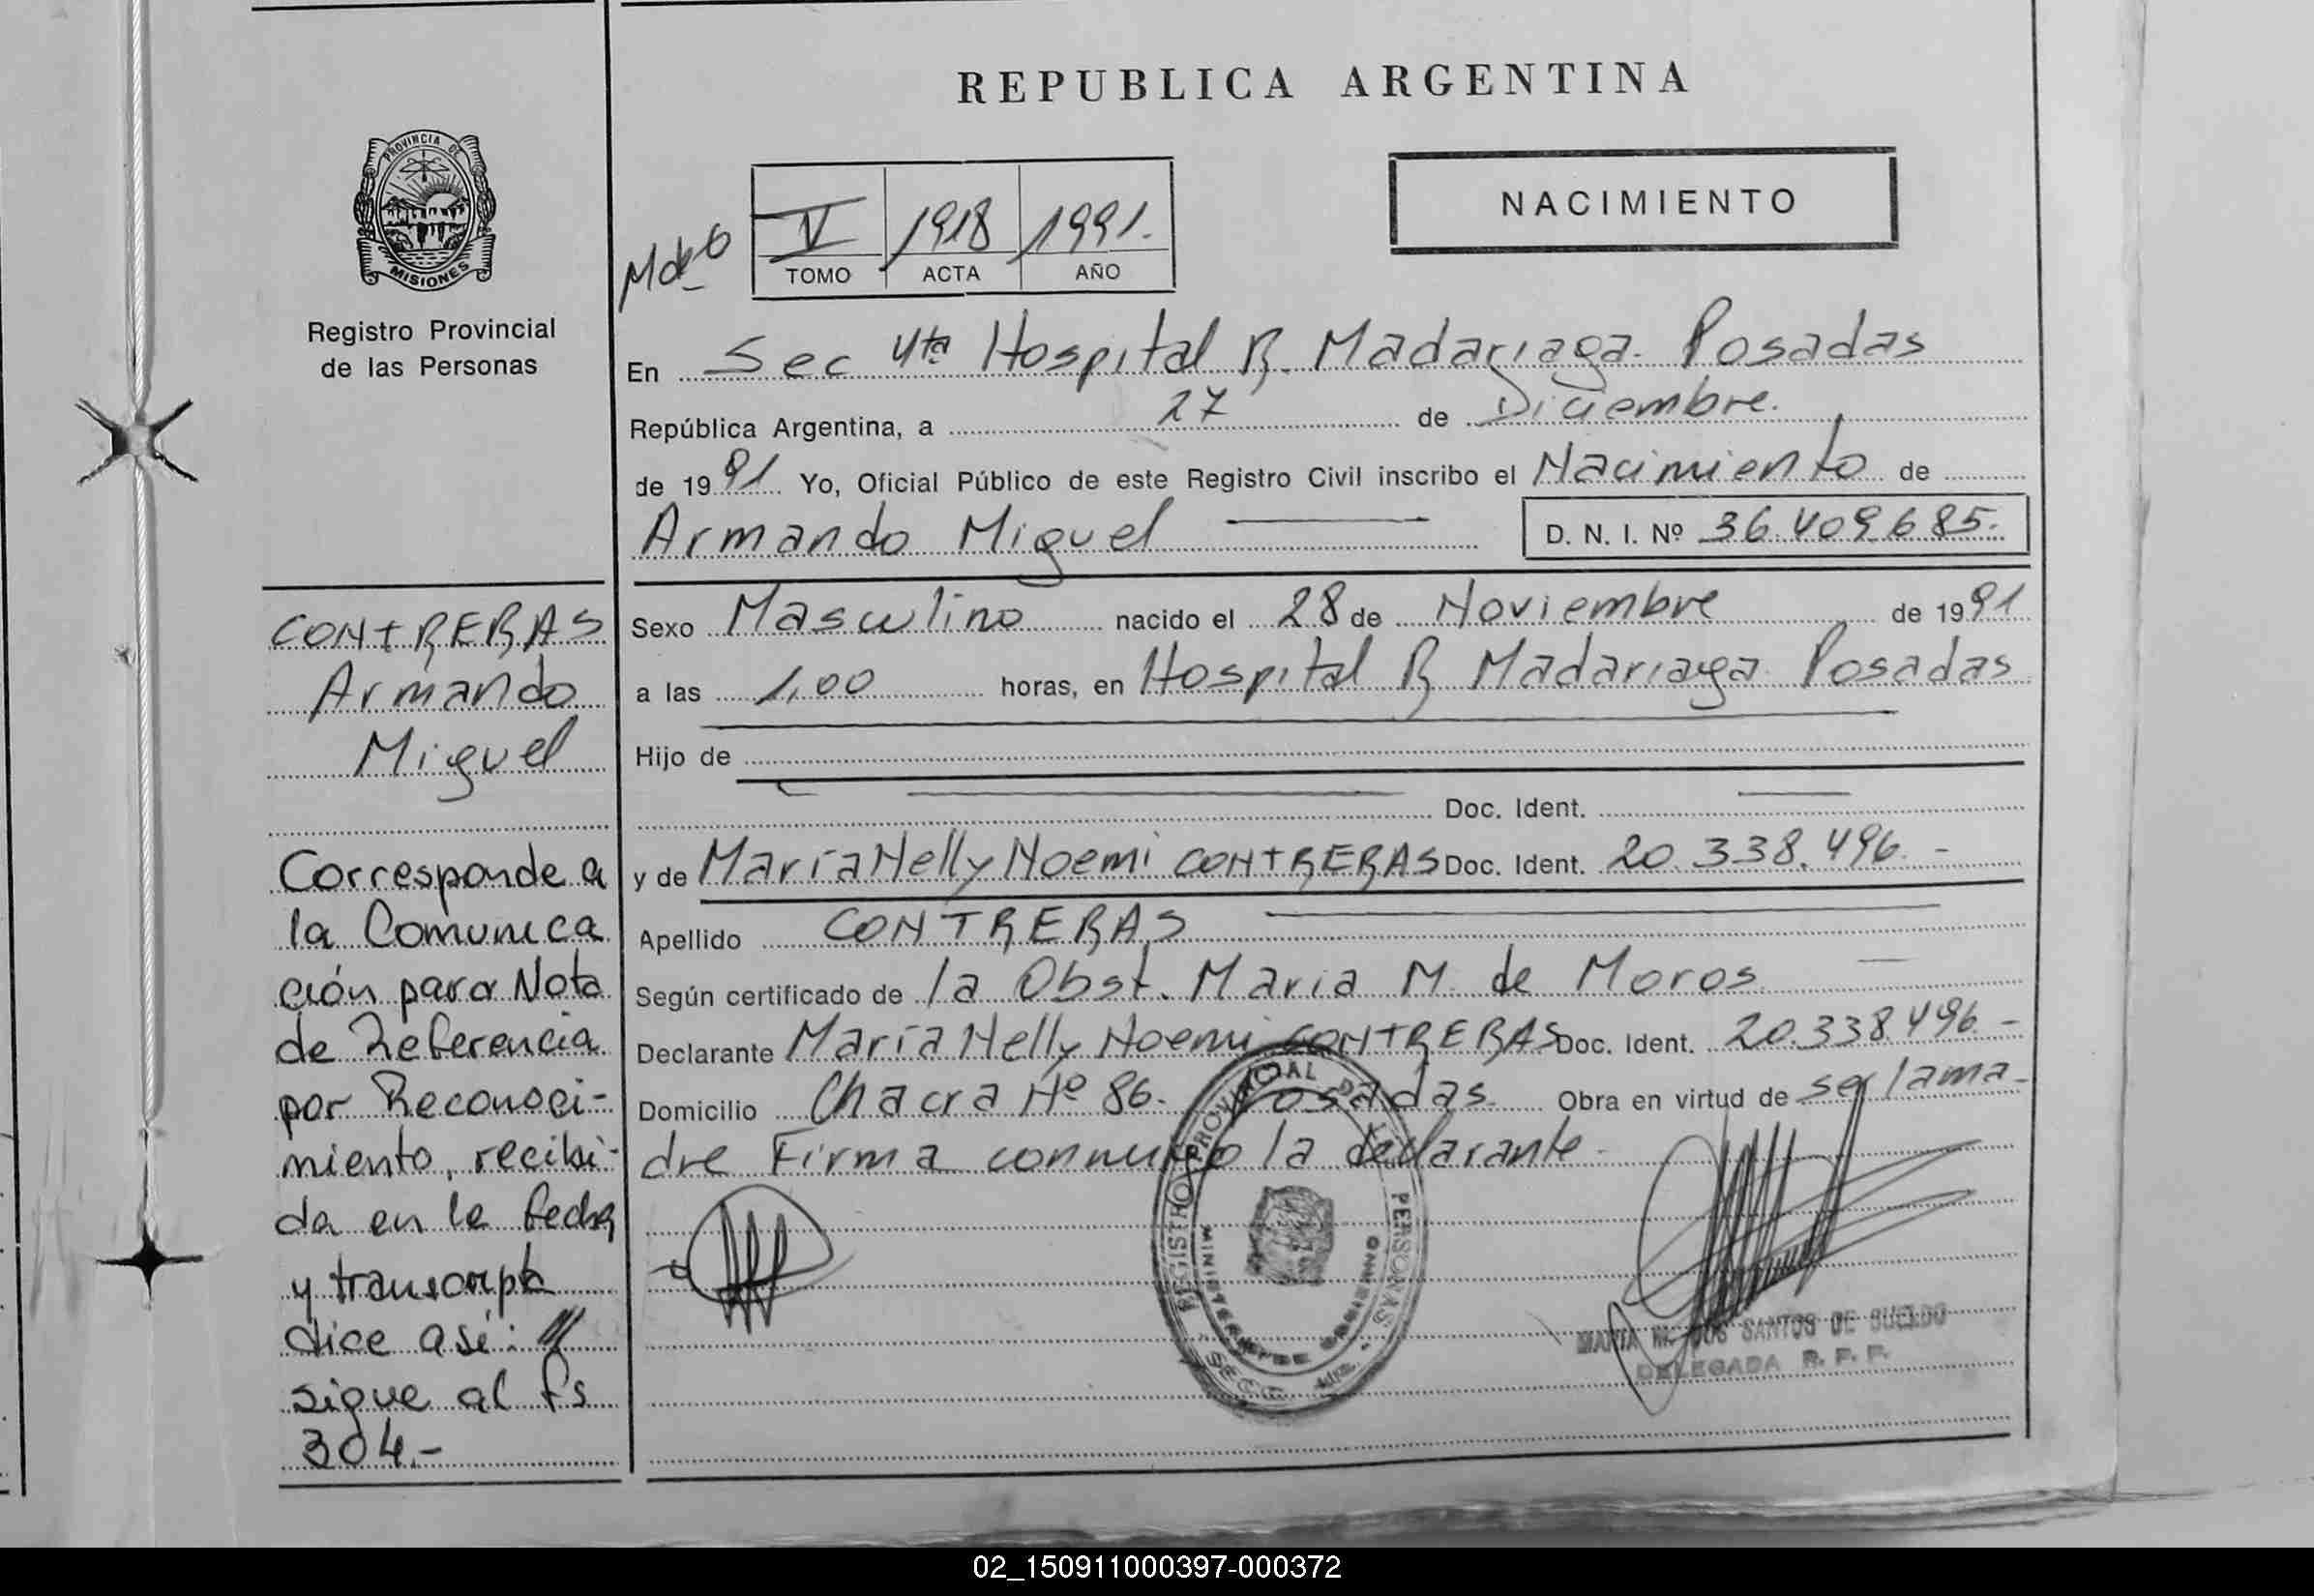 REPUBLICA ARGENTINA
PROVINCIA DE
MISIONES
Registro Provincial
de las Personas
NACIMIENTO
V 1918 1991.
TOMO ACTA AÑO
En Sec 4ta Hospital R. Madariaga. Posadas
República Argentina, a 27 de Diciembre.
de 1991 Yo, Oficial Público de este Registro Civil inscribo el Nacimiento de
Armando Miguel D. N. I. Nº 36.409.685.
Sexo Masculino nacido el 28 de Noviembre de 1991
a las 1,00 horas, en Hospital R Madariaga Posadas
Hijo de
Doc. Ident.
y de María Nelly Noemi CONTRERAS Doc. Ident. 20.338.496.-
Apellido CONTRERAS
Según certificado de la Obst. Maria M. de Moros
Declarante María Nelly Noemi CONTRERAS Doc. Ident. 20.338.496.-
Domicilio Chacra Nº 86. Posadas Obra en virtud de ser la ma-
dre Firma conmigo la declarante.
CONTRERAS
Armando
Miguel
Corresponde a
la Comunica
ción para Nota
de Referencia
por Reconoci-
miento, recibi-
da en la fecha
y transcripta
dice así:
sigue al Fs
304.-
REGISTRO PROVINCIAL DE PERSONAS
MARIA M. DOS SANTOS DE SUELDO
DELEGADA R. P. P.
02_150911000397-000372